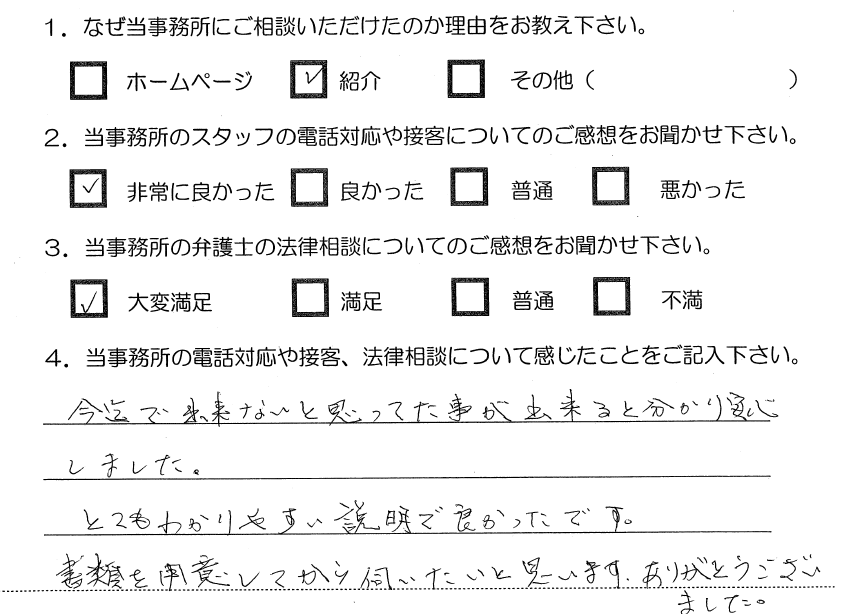 1．なぜ当事務所にご相談いただけたのか理由をお教え下さい。
ホームページ 紹介 その他（ ）
2．当事務所のスタッフの電話対応や接客についてのご感想をお聞かせ下さい。
非常に良かった 良かった 普通 悪かった
3．当事務所の弁護士の法律相談についてのご感想をお聞かせ下さい。
大変満足 満足 普通 不満
4．当事務所の電話対応や接客、法律相談について感じたことをご記入下さい。
今迄で出来ないと思ってた事が出来ると分かり安心
しました。
とてもわかりやすい説明で良かったです。
書類を用意してから伺いたいと思います。ありがとうござい
ました。